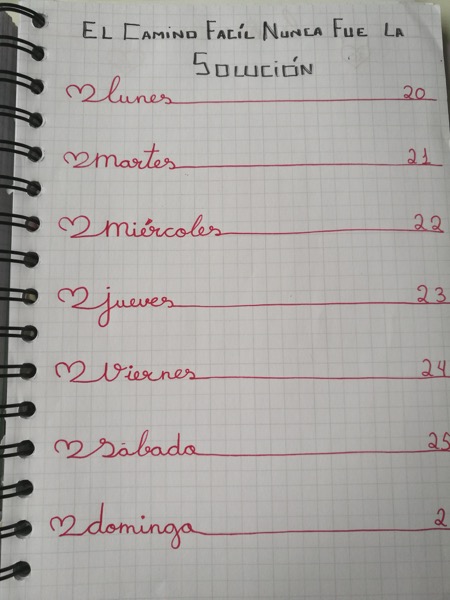 EL CAMINO FACÍL NUNCA FUE LA
SOLUCIÓN
lunes 20
martes 21
miércoles 22
jueves 23
viernes 24
sábado 25
domingo 2